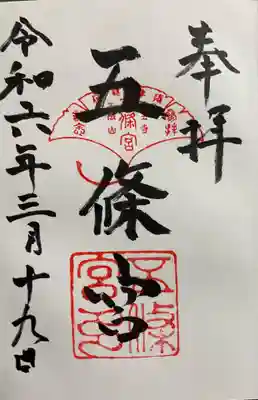 奉拝
五條宮
令和六年三月十九日